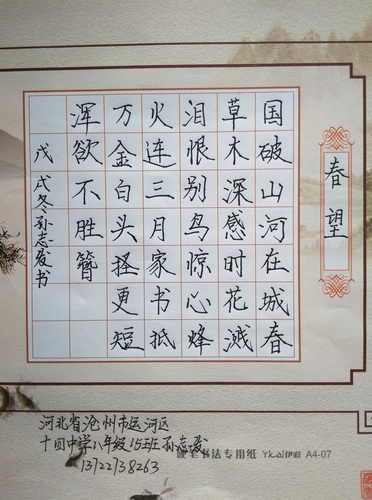 春望
国破山河在城春
草木深感时花溅
泪恨别鸟惊心烽
火连三月家书抵
万金白头搔更短
浑欲不胜簪
戊戌冬孙志发书
河北省沧州市运河区
十四中学八年级15班孙志发
硬笔书法专用纸 Yicai伊彩 A4-07
13722738263